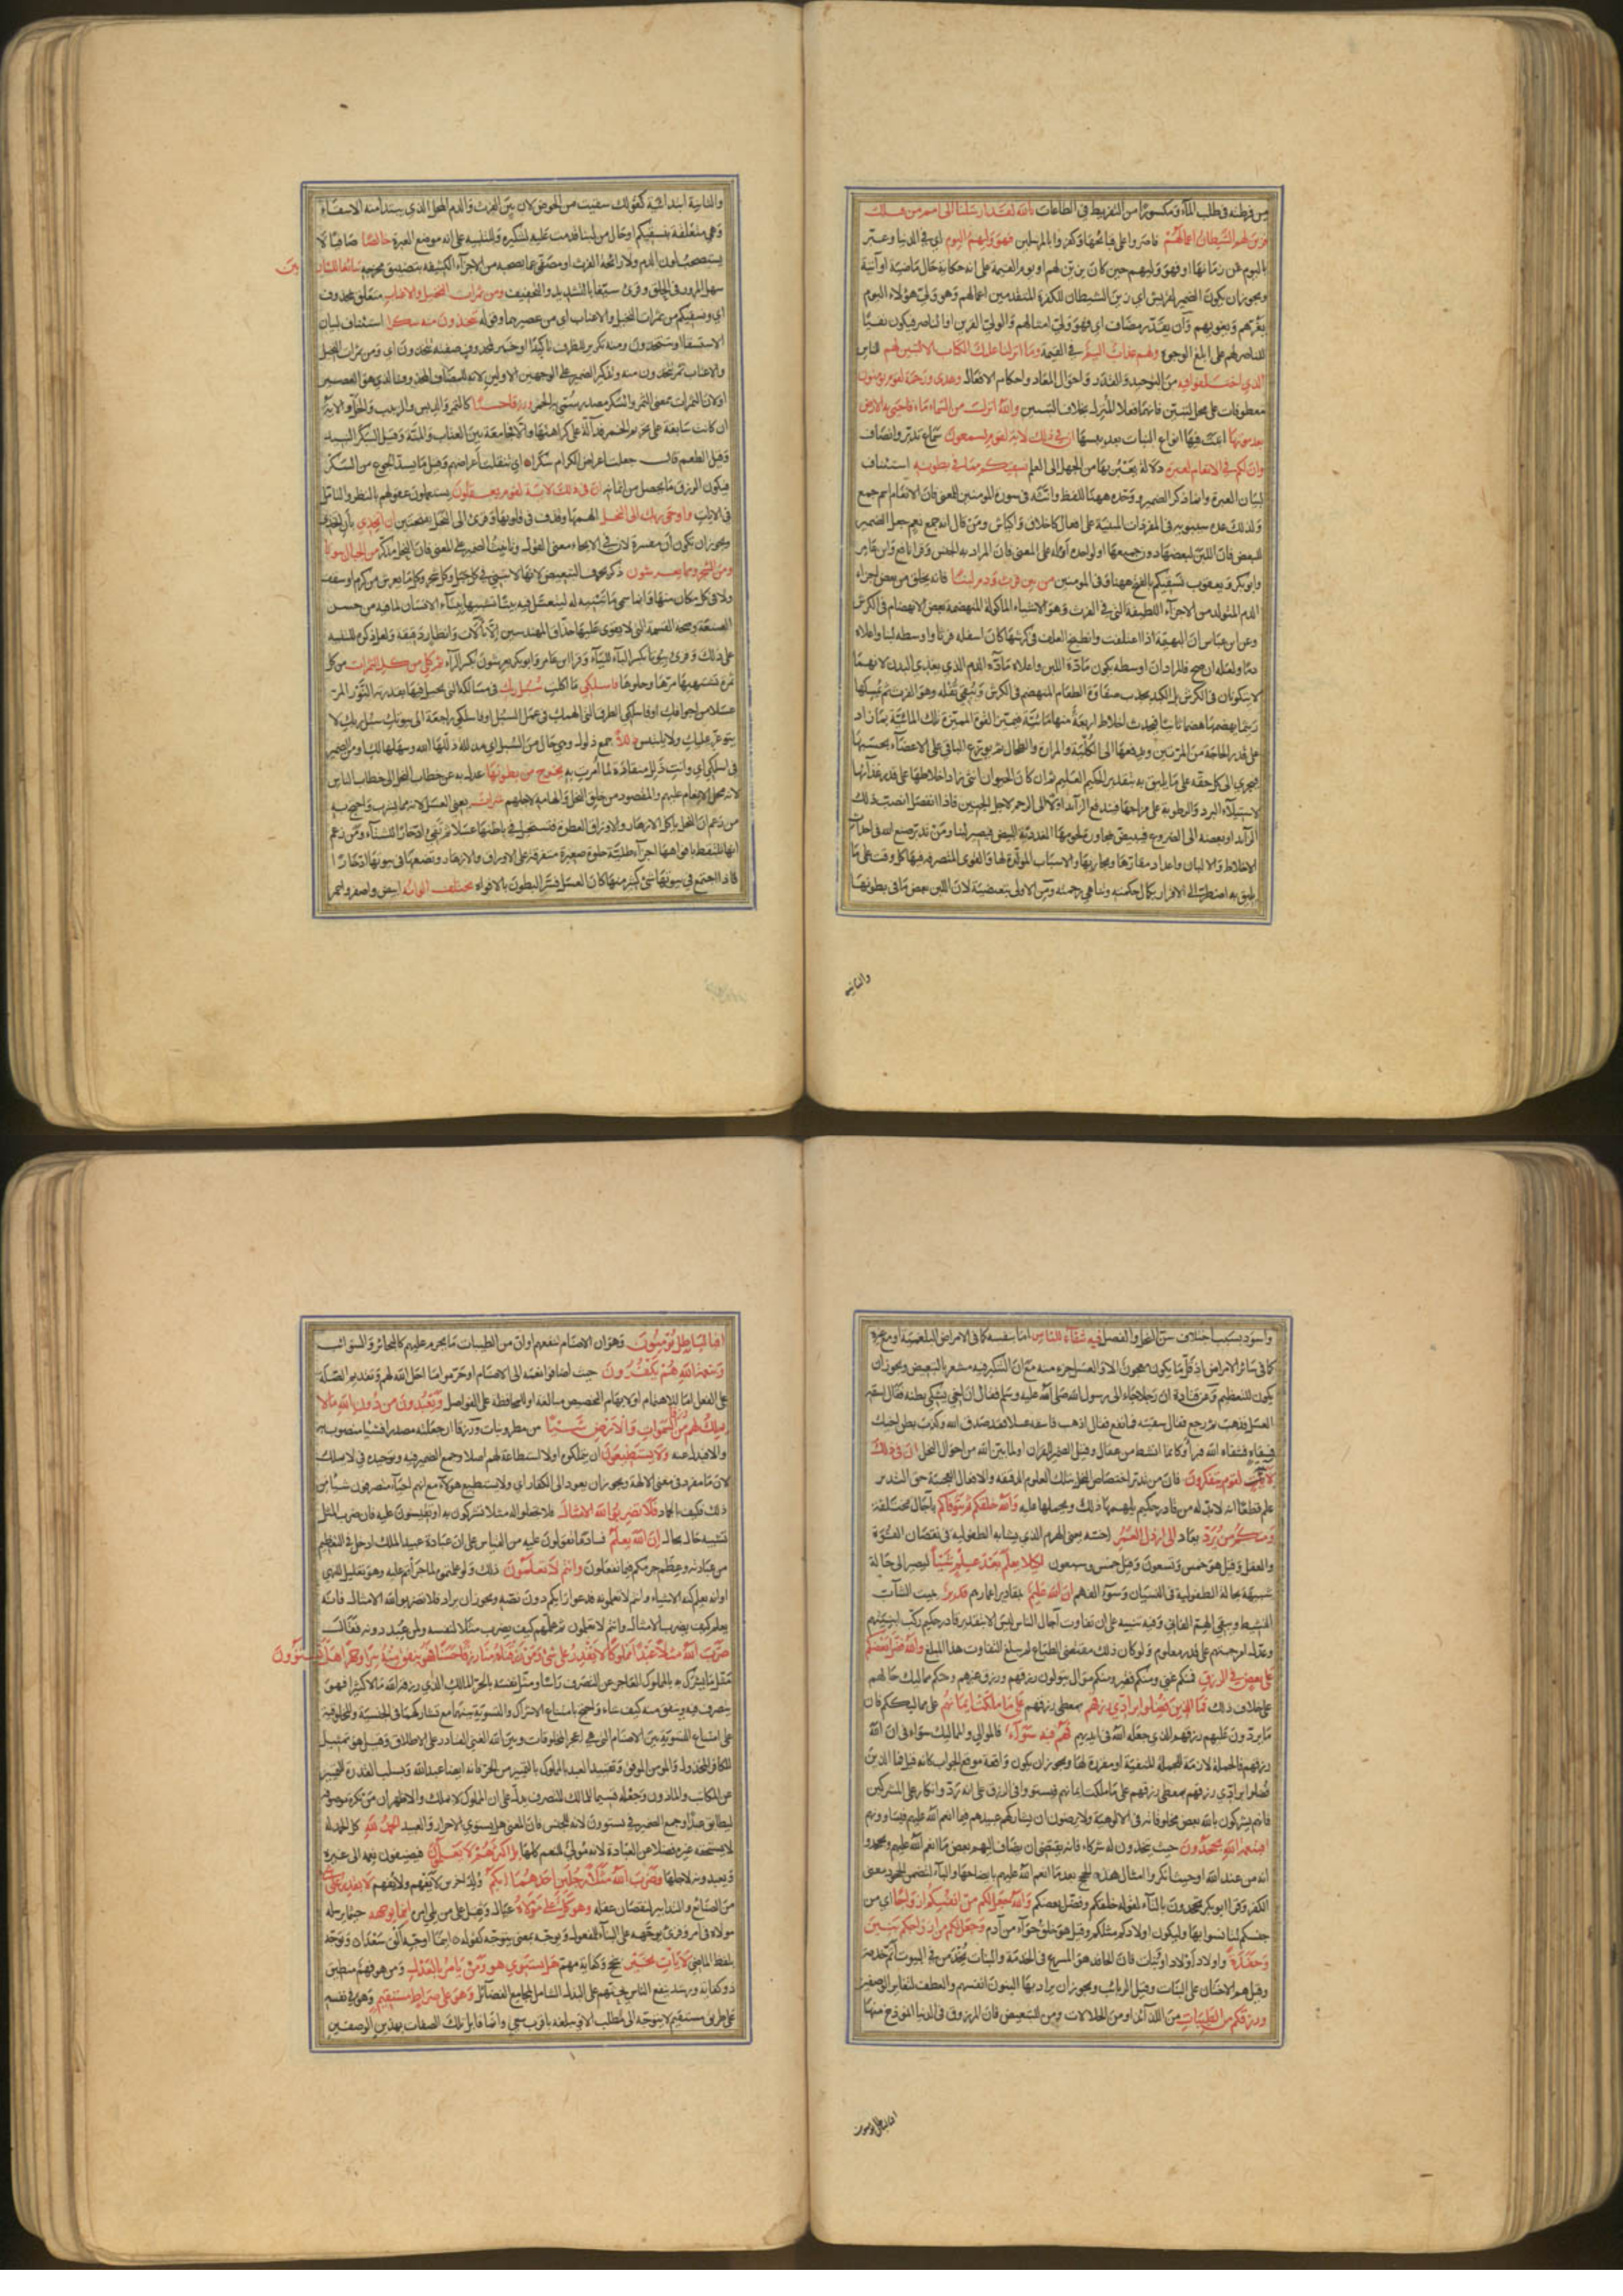 من فرطته في طلب الماء ومكسورا من التفريط في الطاعات تالله لقد ارسلنا الى امم من قبلك
فزين لهم الشيطان اعمالهم فاصروا على قبائحها وكفروا بالمرسلين فهو وليهم اليوم اي في الدنيا وعبر
باليوم عن زمانها او فهو وليهم حين كان يزين لهم او يوم القيمة على انه حكاية حال ماضية او آتية
ويجوز ان يكون الضمير لقريش اي زين الشيطان للكفرة المتقدمين اعمالهم وهو ولي هؤلاء اليوم
يغرهم ويغويهم وان يقدر مضاف اي فهو ولي امثالهم والولي القرين او الناصر فيكون نفيا
للناصر لهم على ابلغ الوجوه ولهم عذاب اليم في القيمة وما انزلنا عليك الكتاب الا لتبين لهم للناس
الذي اختلفوا فيه من التوحيد والقدر واحوال المعاد واحكام الافعال وهدى ورحمة لقوم يؤمنون
معطوفان على محل لتبين فانهما فعلا المنزل بخلاف التبيين والله انزل من السماء ماء فاحيى به الارض
بعد موتها انبت فيها انواع النبات بعد يبسها ان في ذلك لاية لقوم يسمعون سماع تدبر وانصاف
وان لكم في الانعام لعبرة دلالة يعتبر بها من الجهل الى العلم نسقيكم مما في بطونه استئناف
لبيان العبرة وانما ذكر الضمير ووحده ههنا للفظ وانثه في سورة المؤمنين للمعنى فان الانعام اسم جمع
ولذلك عده سيبويه في المفردات المبنية على افعال كاخلاق واكياش ومن قال انه جمع نعم جعل الضمير
للبعض فان اللبن لبعضها دون جميعها او لواحده او له على المعنى فان المراد به الجنس وقرا نافع وابن عامر
وابو بكر ويعقوب نسقيكم بالفتح ههنا وفي المؤمنين من بين فرث ودم لبنا فانه يخلق من بعض اجزاء
الدم المتولد من الاجزاء اللطيفة التي في الفرث وهو الاشياء الماكولة المنهضمة بعض الانهضام في الكرش
وعن ابن عباس ان البهيمة اذا اعتلفت وانطبخ العلف في كرشها كان اسفله فرثا واوسطه لبنا واعلاه
دما ولعله ان صح فالمراد ان اوسطه يكون مادة اللبن واعلاه مادة الدم الذي يغذي البدن لانهما
لا يتكونان في الكرش بل الكبد يجذب صفاوة الطعام المنهضم في الكرش ويبقى ثفله وهو الفرث ثم يمسكها
ريثما يهضمها هضما ثانيا فيحدث اخلاط اربعة منها مائية فيميز القوة المميزة تلك المائية بما زاد
على قدر الحاجة من المرتين ويدفعها الى الكلية والمرارة والطحال ثم يوزع الباقي على الاعضاء بحسبها
فيجري الى كل حقه على ما يليق به بتقدير الحكيم العليم ثم ان كان الحيوان انثى زاد اخلاطها على قدر غذائها
لاستيلاء البرد والرطوبة على مزاجها فيندفع الزائد اولا الى الرحم لاجل الجنين فاذا انفصل انصب ذلك
الزائد او بعضه الى الضروع فيبيض بمجاورة لحومها الغددية البيض فيصير لبنا ومن تدبر صنع الله في احداث
الاخلاط والالبان واعداد مقارها ومجاريها والاسباب المولدة لها والقوى المتصرفة فيها كل وقت على ما
يليق به اضطر الى الاقرار بكمال حكمته وتناهي رحمته ومن الاولى تبعيضية لان اللبن بعض ما في بطونها
والثانية
والثانية ابتدائية كقولك سقيت من الحوض لان بين الفرث والدم المحل الذي يبتدا منه الاسقاء
وهي متعلقة بنسقيكم او حال من لبنا قدمت عليه لتنكيره وللتنبيه على انه موضع العبرة خالصا صافيا لا
يستصحب لون الدم ولا رائحة الفرث او مصفى عما يصحبه من الاجزاء الكثيفة بتضييق مخرجه سائغا للشاربين
سهل المرور في الحلق وقرئ سيغا بالتشديد والتخفيف ومن ثمرات النخيل والاعناب متعلق بمحذوف
اي ونسقيكم من ثمرات النخيل والاعناب اي من عصيرهما وقوله تتخذون منه سكرا استئناف لبيان
الاسقاء او تتخذون ومنه تكرير للظرف تاكيدا او خبر لمحذوف صفته تتخذون اي ومن ثمرات النخيل
والاعناب ثمر تتخذون منه وتذكير الضمير على الوجهين الاولين لانه للمضاف المحذوف الذي هو العصير
او لان الثمرات بمعنى الثمر والسكر مصدر سمي به الخمر ورزقا حسنا كالتمر والدبس والزبيب والخل والاية
ان كانت سابقة على تحريم الخمر فدالة على كراهتها والا فجامعة بين العتاب والمنة وقيل السكر النبيذ
وقيل الطعم قال جعلت اعراض الكرام سكرا اي تنقلت باعراضهم وقيل ما يسد الجوع من السكر
فيكون الرزق ما يحصل من اثمانه ان في ذلك لاية لقوم يعقلون يستعملون عقولهم بالنظر والتامل
في الايات واوحى ربك الى النحل الهمها وقذف في قلوبها وقرئ الى النحل بفتحتين ان اتخذي بان اتخذي
ويجوز ان تكون ان مفسرة لان في الايحاء معنى القول وتانيث الضمير على المعنى فان النحل مذكر من الجبال بيوتا
ومن الشجر ومما يعرشون ذكر بحرف التبعيض لانها لا تبني في كل جبل وكل شجر وكل ما يعرش من كرم او سقف
ولا في كل مكان منها وانما سمى ما تبنيه له ليتعسل فيه بيتا تشبيها ببناء الانسان لما فيه من حسن
الصنعة وصحة القسمة التي لا يقوى عليها حذاق المهندسين الا بآلات وانظار دقيقة ولعل ذكره للتنبيه
على ذلك وقرئ بيوتا بكسر الباء للياء وقرا ابن عامر وابو بكر يعرشون بكسر الراء ثم كلي من كل الثمرات من كل
ثمرة تشتهيها مرها وحلوها فاسلكي ما اكلت سبل ربك في مسالكه التي يحيل فيها بقدرته النور المر
عسلا من اجوافك او فاسلكي الطرق التي الهمك في عمل العسل او فاسلكي راجعة الى بيوتك سبل ربك لا
يتوعر عليك ولا يلتبس ذللا جمع ذلول وهي حال من السبل اي مذللة ذللها الله وسهلها لك او من الضمير
في اسلكي اي وانت ذلل منقادة لما امرت به يخرج من بطونها عدل به عن خطاب النحل الى خطاب الناس
لانه محل الانعام عليهم والمقصود من خلق النحل والهامه لاجلهم شراب يعني العسل لانه مما يشرب واحتج به
من زعم ان النحل ياكل الازهار والاوراق العطرة فتستحيل في باطنها عسلا ثم تقيئ ادخارا للشتاء ومن زعم
انها تلتقط بافواهها اجزاء طلية حلوة صغيرة متفرقة على الاوراق والازهار وتضعها في بيوتها ادخارا
فاذا اجتمع في بيوتها شئ كثير منها كان العسل فسر البطون بالافواه مختلف الوانه ابيض واصفر واحمر
واسود بسبب اختلاف سن النحل والفصل فيه شفاء للناس اما بنفسه كما في الامراض البلغمية او مع غيره
كما في سائر الامراض اذ قل ما يكون معجون الا والعسل جزء منه مع ان التنكير فيه مشعر بالتبعيض ويجوز ان
يكون للتعظيم وعن قتادة ان رجلا جاء الى رسول الله صلى الله عليه وسلم فقال ان اخي يشتكي بطنه فقال اسقه
العسل فذهب ثم رجع فقال سقيته فما نفع فقال اذهب فاسقه عسلا فقد صدق الله وكذب بطن اخيك
فسقاه فشفاه الله فبرأ وكانما انشط من عقال وقيل الضمير للقران او لما بين الله من احوال النحل ان في ذلك
لاية لقوم يتفكرون فان من تدبر اختصاص النحل بتلك العلوم الدقيقة والافعال العجيبة حق التدبر
علم قطعا انه لابد له من قادر حكيم يلهمها ذلك ويحملها عليه والله خلقكم ثم يتوفاكم بآجال مختلفة
ومنكم من يرد يعاد الى ارذل العمر اخسه يعني الهرم الذي يشابه الطفولية في نقصان القوة
والعقل وقيل هو خمس وتسعون وقيل خمس وسبعون لكيلا يعلم بعد علم شيئا ليصير الى حالة
شبيهة بحالة الطفولية في النسيان وسوء الفهم ان الله عليم بمقادير اعمارهم قدير يميت الشاب
النشيط ويبقي الهم الفاني وفيه تنبيه على ان تفاوت آجال الناس ليس الا بتقدير قادر حكيم ركب ابنيتهم
وعدل امزجتهم على قدر معلوم ولو كان ذلك مقتضى الطبائع لم يبلغ التفاوت هذا المبلغ والله فضل بعضكم
على بعض في الرزق فمنكم غني ومنكم فقير ومنكم موال يتولون رزقهم ورزق غيرهم ومنكم مماليك حالهم
على خلاف ذلك فما الذين فضلوا برادي رزقهم بمعطي رزقهم على ما ملكت ايمانهم على مماليكهم فان
ما يردون عليهم رزقهم الذي جعله الله في ايديهم فهم فيه سواء فالموالي والمماليك سواء في ان الله
رزقهم فالجملة لازمة للجملة المنفية او مقررة لها ويجوز ان يكون واقعة موقع الجواب كانه قيل فما الذين
فضلوا برادي رزقهم بمعطي رزقهم على ما ملكت ايمانهم فيستووا في الرزق على انه رد وانكار على المشركين
فانهم يشركون بالله بعض مخلوقاته في الالوهية ولا يرضون ان يشاركهم عبيدهم فيما انعم الله عليهم فيساووهم
افبنعمة الله يجحدون حيث يتخذون له شركاء فانه يقتضي ان يضاف اليهم بعض ما انعم الله عليهم ويجحدوا
انه من عند الله او حيث انكروا امثال هذه الحجج بعد ما انعم الله عليهم بايضاحها والباء لتضمن الجحود معنى
الكفر وقرا ابو بكر تجحدون بالتاء لقوله خلقكم وفضل بعضكم والله جعل لكم من انفسكم ازواجا اي من
جنسكم لتانسوا بها وليكون اولادكم مثلكم وقيل هو خلق حواء من آدم وجعل لكم من ازواجكم بنين
وحفدة واولاد اولاد او بنات فان الحافد هو المسرع في الخدمة والبنات يخدمن في البيوت اتم خدمة
وقيل هم الاختان على البنات وقيل الربائب ويجوز ان يراد بها البنون انفسهم والعطف لتغاير الوصفين
ورزقكم من الطيبات من اللذائذ او من الحلالات ومن للتبعيض فان المرزوق في الدنيا انموذج منها
افبالباطل يؤمنون
افبالباطل يؤمنون وهو ان الاصنام تنفعهم او ان من الطيبات ما يحرم عليهم كالبحائر والسوائب
وبنعمت الله هم يكفرون حيث اضافوا نعمه الى الاصنام او حرموا ما احل الله لهم وتقديم الصلة
على الفعل اما للاهتمام او لايهام التخصيص مبالغة او للمحافظة على الفواصل ويعبدون من دون الله ما لا
يملك لهم رزقا من السموات والارض شيئا من مطر ونبات ورزقا ان جعلته مصدرا فشيئا منصوب به
والا فبدل منه ولا يستطيعون ان يتملكوه او لا استطاعة لهم اصلا وجمع الضمير فيه وتوحيده في لا يملك
لان ما مفرد في معنى الالهة ويجوز ان يعود الى الكفار اي ولا يستطيع هؤلاء مع انهم احياء متصرفون شيئا من
ذلك فكيف بالجماد فلا تضربوا لله الامثال فلا تجعلوا له مثلا تشركون به او تقيسون عليه فان ضرب المثل
تشبيه حال بحال ان الله يعلم فساد ما تعولون عليه من القياس على ان عبادة عبيد الملك ادخل في التعظيم
من عبادته وعظم جرمكم فيما تفعلون وانتم لا تعلمون ذلك ولو علمتموه لما جرأتم عليه وهو تعليل للنهي
او انه يعلم كنه الاشياء وانتم لا تعلمونه فدعوا رايكم دون نصه ويجوز ان يراد فلا تضربوا لله الامثال فانه
يعلم كيف يضرب الامثال وانتم لا تعلمون ثم علمهم كيف يضرب مثلا لنفسه ولمن عبد دونه فقال
ضرب الله مثلا عبدا مملوكا لا يقدر على شئ ومن رزقناه منا رزقا حسنا فهو ينفق منه سرا وجهرا هل يستوون
مثل ما يشرك به بالمملوك العاجز عن التصرف راسا ومثل نفسه بالحر المالك الذي رزقه الله مالا كثيرا فهو
يتصرف فيه وينفق منه كيف يشاء واحتج بامتناع الاشتراك والتسوية بينهما مع تشاركهما في الجنسية والمخلوقية
على امتناع التسوية بين الاصنام التي هي اعجز المخلوقات وبين الله الغني القادر على الاطلاق وقيل هو تمثيل
للكافر المخذول والمؤمن الموفق وتقييد العبد بالمملوك بالتمييز من الحر فانه ايضا عبد الله وبسلب القدرة للتمييز
عن المكاتب والماذون وجعله قسيما للمالك المتصرف يدل على ان المملوك لا يملك والاظهر ان من نكرة موصوفة
ليطابق عبدا وجمع الضمير في يستوون لانه للجنس فان المعنى هل يستوي الاحرار والعبيد الحمد لله كل الحمد له
لا يستحقه غيره فضلا عن العبادة لانه مولي النعم كلها بل اكثرهم لا يعلمون فيضيفون نعمه الى غيره
ويعبدونه لاجلها وضرب الله مثلا رجلين احدهما ابكم ولد اخرس لا يفهم ولا يفهم لا يقدر على شئ
من الصنائع والتدابير لنقصان عقله وهو كل على مولاه عيال وثقل على من يلي امره اينما يوجهه حيثما يرسله
مولاه في امر وقرئ يوجه على البناء للمفعول ويوجه بمعنى يتوجه كقوله اينما اوجه الق سعدا وتوجه
بلفظ الماضي لا يات بخير بنجح وكفاية مهم هل يستوي هو ومن يامر بالعدل ومن هو فهم منطيق
ذو كفاية ورشد ينفع الناس بحثهم على العدل الشامل لمجامع الفضائل وهو على صراط مستقيم وهو في نفسه
على طريق مستقيم لا يتوجه الى مطلب الا ويبلغه باقرب سعي وانما قابل تلك الصفات بهذين الوصفين